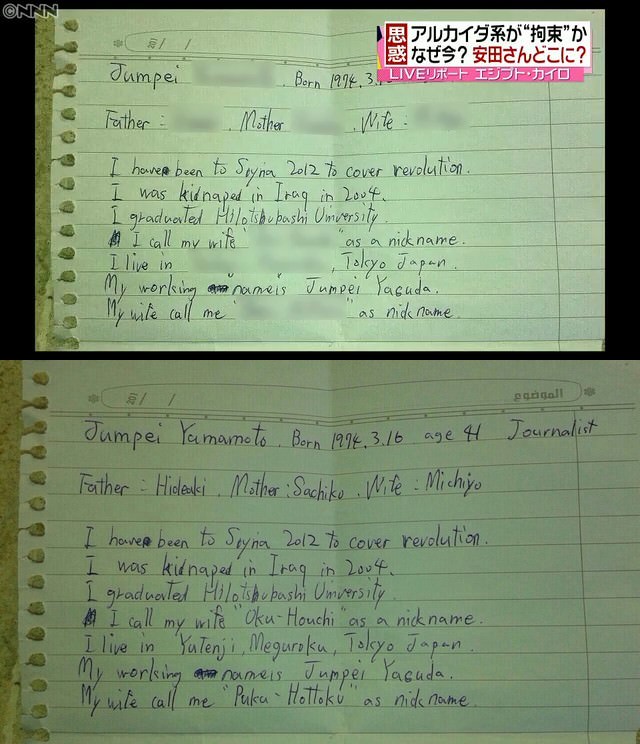 ©NNN
思惑
アルカイダ系が“拘束”か
なぜ今？安田さんどこに？
LIVEリポート エジプト・カイロ
Jumpei . Born 1974.3.
Father = . Mother . Wife :
I have been to Syria 2012 to cover revolution.
I was kidnaped in Iraq in 2004.
I graduated Hitotsubashi University.
I call my wife " " as a nickname.
I live in , Tokyo Japan.
My working "name" is Jumpei Yasuda.
My wife call me " " as nickname.
الموضوع
Jumpei Yamamoto. Born 1974.3.16 age 41 Journalist
Father = Hideaki. Mother : Sachiko. Wife = Michiyo
I have been to Syria 2012 to cover revolution.
I was kidnaped in Iraq in 2004.
I graduated Hitotsubashi University.
I call my wife "Oku-Houchi" as a nickname.
I live in Yutenji, Meguroku, Tokyo Japan.
My working name is Jumpei Yasuda.
My wife call me "Puku-Hottoku" as nickname.